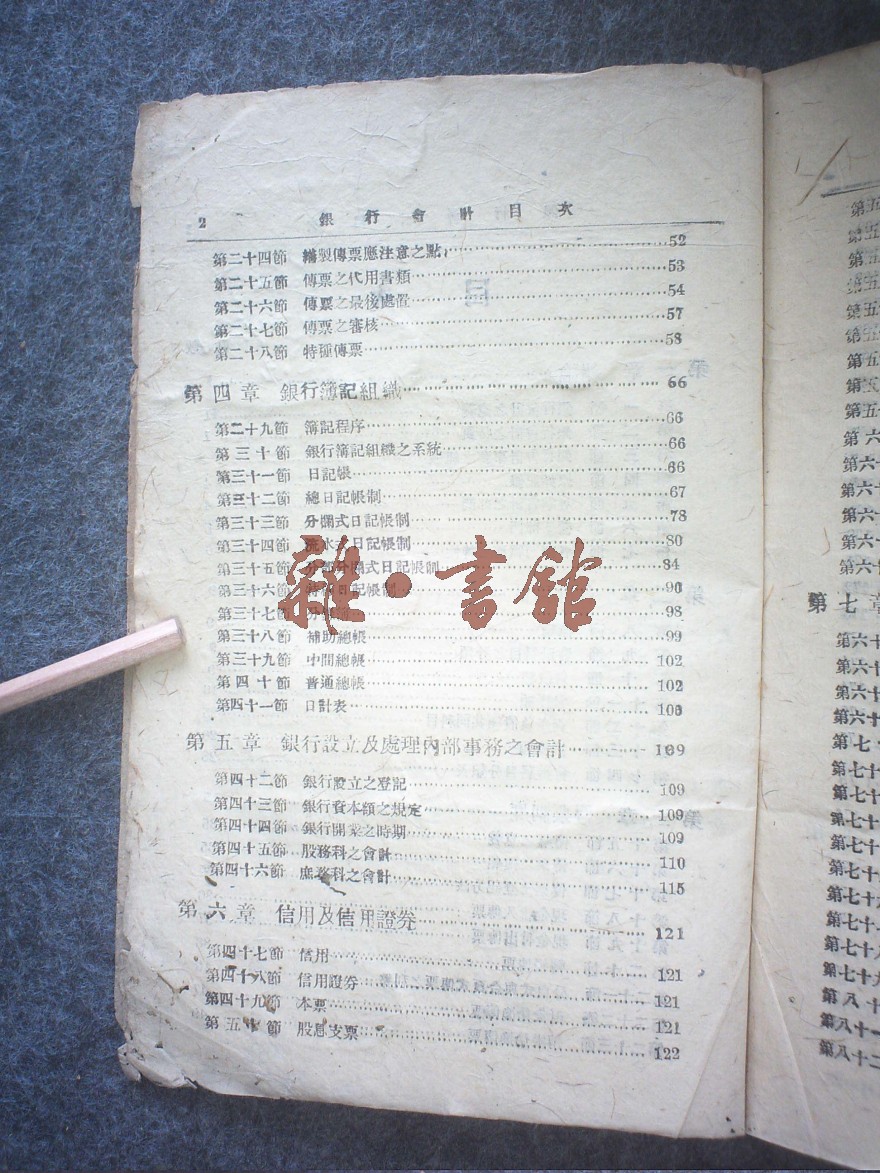 2 銀行會計目次
第二十四節 繕製傳票應注意之點 52
第二十五節 傳票之代用書類 53
第二十六節 傳票之最後處置 54
第二十七節 傳票之審核 57
第二十八節 特種傳票 58
第四章 銀行簿記組織 66
第二十九節 簿記程序 66
第三十節 銀行簿記組織之系統 66
第三十一節 日記帳 66
第三十二節 總日記帳制 67
第三十三節 分欄式日記帳制 78
第三十四節 日記帳制 80
第三十五節 分欄式日記帳制 84
第三十六節 日記帳制 90
第三十七節 98
第三十八節 補助總帳 99
第三十九節 中間總帳 102
第四十節 普通總帳 102
第四十一節 日計表
第五章 銀行設立及處理內部事務之會計 109
第四十二節 銀行設立之登記 109
第四十三節 銀行資本額之規定 109
第四十四節 銀行開業之時期 109
第四十五節 股務科之會計 110
第四十六節 庶務科之會計 115
第六章 信用及信用證券 121
第四十七節 信用 121
第四十八節 信用證券 121
第四十九節 本票 121
第五十節 股息支票 122
雜·書館
第七章